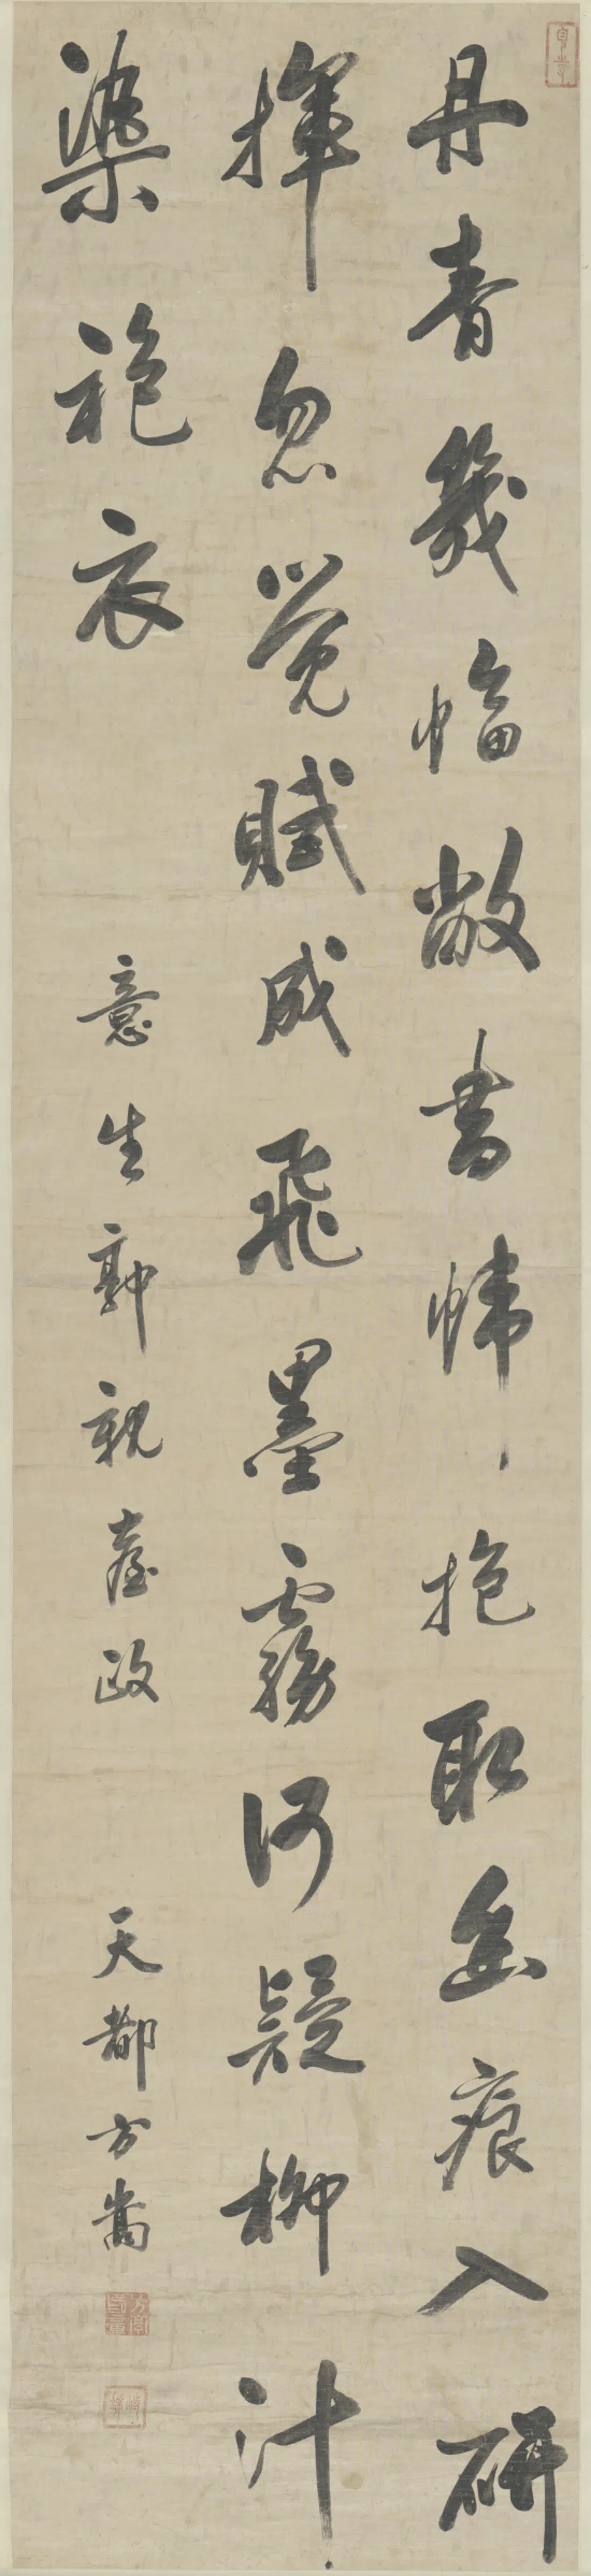 丹青幾幅敞書幃抱取痕入研
揮忽覺賦成飛墨霧何疑柳汁
染袍衣
意生郭親臺政 天都方嵩